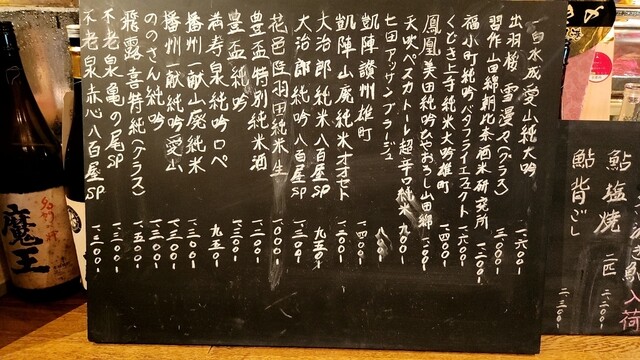 一白水成 愛山純大吟 一、六〇〇-
出羽桜 雪漫々(グラス) 三〇〇〇-
習作 山田錦 朝比奈酒米研究所 一、二〇〇-
福小町 純吟 バタフライエフェクト 一、六〇〇-
くどき上手 純米大吟 雄町 一、四〇〇-
鳳凰美田 純吟 ひやおろし 山田錦 一、一〇〇-
天吹 ペスカトーレ 超辛口純米 九〇〇-
七田 アッサンブラージュ 八〇〇-
凱陣 讃州雄町 一、四〇〇-
凱陣 山廃純米 オオセト 一、三〇〇-
大治郎 純米 八百屋SP 九五〇-
大治郎 純吟 八百屋SP 一、三〇〇-
花邑 陸羽田 純米 生 一、〇〇〇-
豊盃 特別純米酒 一、二〇〇-
豊盃 純吟 一、三〇〇-
満寿泉 純吟 ロペ 九五〇-
播州一献 山廃純米 一、一〇〇-
播州一献 純吟 愛山 一、三〇〇-
ののさん 純吟 一、三〇〇-
飛露喜 特純(グラス) 一、五〇〇-
不老泉 亀の尾SP 一、三〇〇-
不老泉 赤心 八百屋SP 一、三〇〇-
入荷
鮎塩焼 一匹 二、二〇〇-
鮎背ごし 二、三〇〇-
魔王